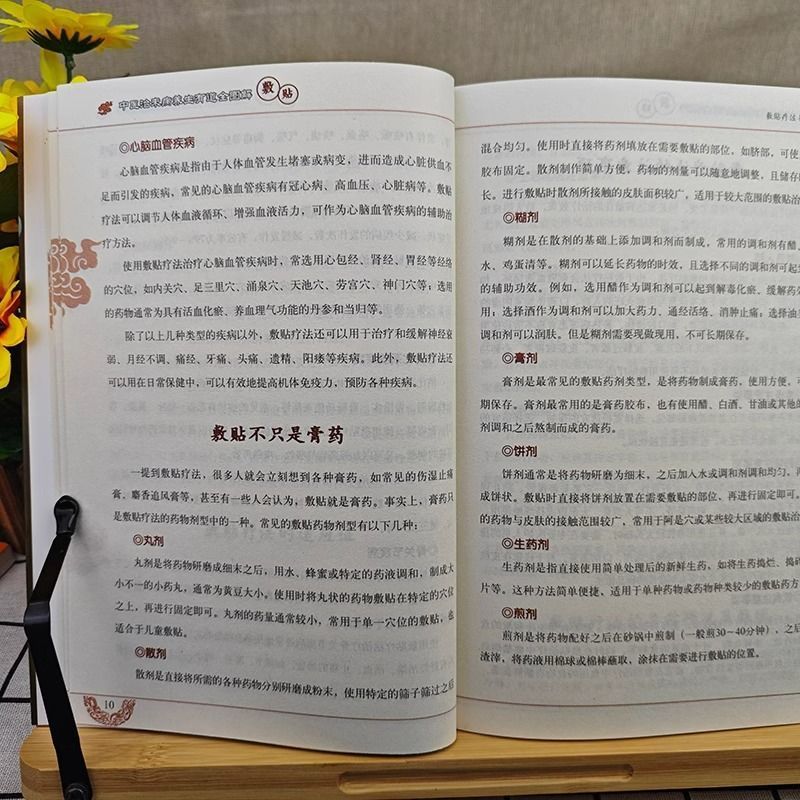 中医治未病养生有道全图解 敷贴
◎心脑血管疾病
心脑血管疾病是指由于人体血管发生堵塞或病变，进而造成心脏供血不
足而引发的疾病，常见的心脑血管疾病有冠心病、高血压、心脏病等。敷贴
疗法可以调节人体血液循环、增强血液活力，可作为心脑血管疾病的辅助治
疗方法。
使用敷贴疗法治疗心脑血管疾病时，常选用心包经、肾经、胃经等经络
的穴位，如内关穴、足三里穴、涌泉穴、天池穴、劳宫穴、神门穴等；选用
的药物通常为具有活血化瘀、养血理气功能的丹参和当归等。
除了以上几种类型的疾病以外，敷贴疗法还可以用于治疗和缓解神经衰
弱、月经不调、痛经、牙痛、头痛、遗精、阳痿等疾病。此外，敷贴疗法还
可以用在日常保健中，可以有效地提高机体免疫力，预防各种疾病。
敷贴不只是膏药
一提到敷贴疗法，很多人就会立刻想到各种膏药，如常见的伤湿止痛
膏、麝香追风膏等，甚至有一些人会认为，敷贴就是膏药。事实上，膏药只
是敷贴疗法的药物剂型中的一种。常见的敷贴药物剂型有以下几种：
◎丸剂
丸剂是将药物研磨成细末之后，用水、蜂蜜或特定的药液调和，制成大
小不一的小药丸，通常为黄豆大小。使用时将丸状的药物敷贴在特定的穴位
之上，再进行固定即可。丸剂的药量通常较小，常用于单一穴位的敷贴，也
适合于儿童敷贴。
◎散剂
散剂是直接将所需的各种药物分别研磨成粉末，使用特定的筛子筛过之后
10
敷贴疗法
混合均匀。使用时直接将药剂填放在需要敷贴的部位，如脐部，可使
胶布固定。散剂制作简单方便，药物的剂量可以随意地调整，且储存
长。进行敷贴时散剂所接触的皮肤面积较广，适用于较大范围的敷贴治
◎糊剂
糊剂是在散剂的基础上添加调和剂而制成，常用的调和剂有醋、
水、鸡蛋清等。糊剂可以延长药物的时效，且选择不同的调和剂可起
的辅助功效。例如，选用醋作为调和剂可以起到解毒化瘀、缓解药
用；选择酒作为调和剂可以加大药力、通经活络、消肿止痛；选择油
调和剂可以润肤。但是糊剂需要现做现用，不可长期保存。
◎膏剂
膏剂是最常见的敷贴药剂类型，是将药物制成膏药，使用方便，可
期保存。膏剂最常用的是膏药胶布，也有使用醋、白酒、甘油或其他的
剂调和之后熬制而成的膏药。
◎饼剂
饼剂通常是将药物研磨为细末，之后加入水或调和剂调和均匀，再
成饼状。敷贴时直接将饼剂放置在需要敷贴的部位，再进行固定即可。
的药物与皮肤的接触范围较广，常用于阿是穴或某些较大区域的敷贴治
◎生药剂
生药剂是指直接使用简单处理后的新鲜生药，如将生药捣烂、捣碎
片等。这种方法简单便捷，适用于单种药物或药物种类较少的敷贴药方
◎煎剂
煎剂是将药物配好之后在砂锅中煎制（一般煎30～40分钟），之后
渣滓，将药液用棉球或棉棒蘸取，涂抹在需要进行敷贴的位置。